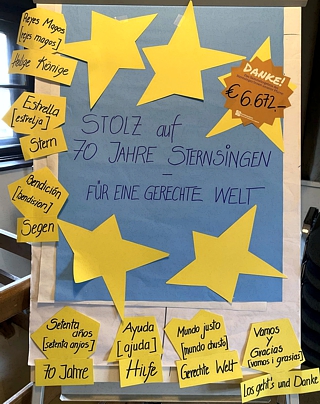 Reyes Magos
[rejes magos]
Heilige Könige
Estrella
[estrelja]
Stern
Bendición
[bendision]
Segen
DANKE!
€ 6.672,-
STOLZ auf
70 JAHRE STERNSINGEN
-
FÜR EINE GERECHTE WELT
Setenta
años
[setenta anjos]
70 Jahre
Ayuda
[ajuda]
Hilfe
Mundo justo
[mundo chusto]
Gerechte Welt
Vamos
y
Gracias
[vamos i grasias]
Los geht's und Danke